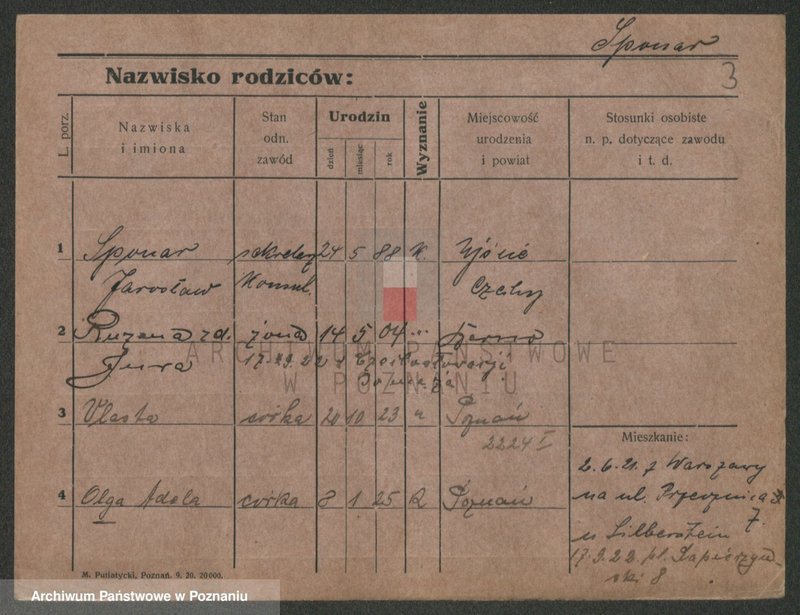 Sponar
3
Nazwisko rodziców:
L. porz.
Nazwiska
i imiona
Stan
odn.
zawód
Urodzin
dzień
miesiąc
rok
Wyznanie
Miejscowość
urodzenia
i powiat
Stosunki osobiste
n. p. dotyczące zawodu
i t. d.
1 Sponar 24 5 88 K.
Jarosław Konsul. Czechy
2 Ruzena zd. żona 14 5 04 "
Jura 17.
ARCHIWUM PAŃSTWOWE
W POZNANIU
3 Vlasta córka 20 10 23 " Poznań
2224 I
Mieszkanie:
2.6.21. z Warszawy
na ul.
7.
u Silberstein
17.9.22 pl.
ski 8
4 Olga Adela córka 8 1 25 R Poznań
M. Putiatycki, Poznań. 9. 20. 20000.
Archiwum Państwowe w Poznaniu